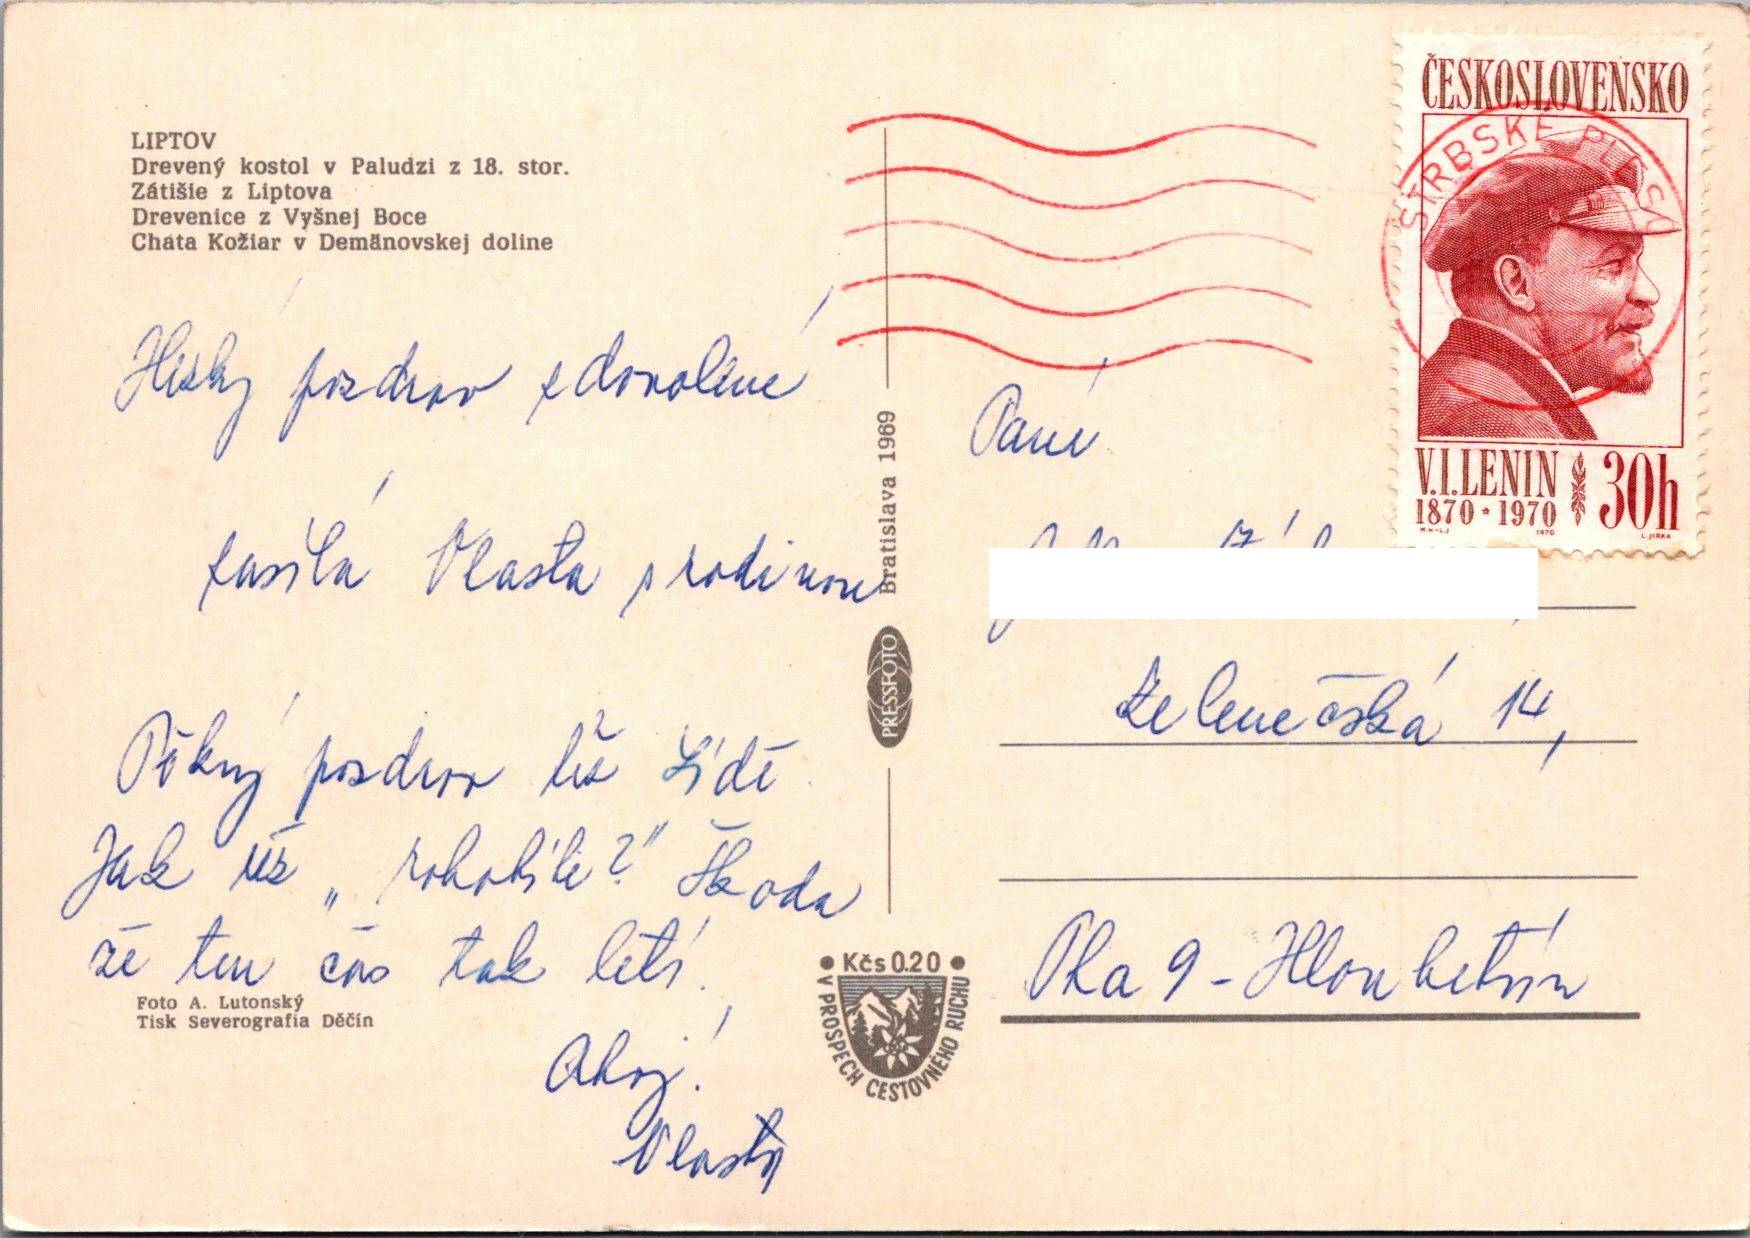 LIPTOV
Drevený kostol v Paludzi z 18. stor.
Zátišie z Liptova
Drevenice z Vyšnej Boce
Chata Kožiar v Demänovskej doline
Hezký pozdrav z dovolené
zasílá Vlasta s rodinou
Pěkný pozdrav též Lídě
Jak už "
Škoda
že ten čas tak letí.
Ahoj!
Vlasta
Foto A. Lutonský
Tisk Severografia Děčín
Bratislava 1969
PRESSFOTO
Kčs 0.20
V PROSPECH CESTOVNÉHO RUCHU
ČESKOSLOVENSKO
ŠTRBSKÉ PLESO
V.I.LENIN 30h
1870 * 1970
1970
L. JIRKA
Paní
Zelenečská 14,
Pha 9 - Hloubětín